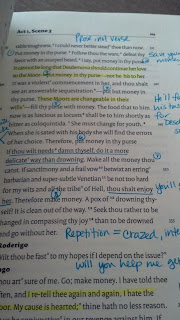 Act 1, Scene 3
usible toughness. "I could never better stead" thee than now.
money in thy purse. " Follow thou the wars," defeat thy
favor with an usurped beard. "I say, put money in thy purse.
It cannot be long that Desdemona should continue her love
to the Moor
put money in thy purse—nor he his to her.
It was a violent" commencement in her, and thou shalt
see an answerable sequestration"—put but money in
thy purse. These Moors are changeable in their
wills"—fill thy purse with money. The food that to him
now is as luscious as locusts" shall be to him shortly as
bitter as coloquintida. "She must change for youth."
When she is sated with his body she will find the errors
of her choice. Therefore, put money in thy purse
If thou wilt needs" damn thyself, do it a more
delicate" way than drowning. Make all the money thou
canst. If sanctimony and a frail vow" betwixt an erring"
barbarian and super-subtle Venetian" be not too hard
for my wits and all the tribe" of Hell, thou shalt enjoy
her. Therefore make money. A pox of" drowning thy-
self! It is clean out of the way. "Seek thou rather to be
hanged in compassing thy joy" than to be drowned
and go without her.
Repetition = crazed,
Roderigo
Wilt thou be fast" to my hopes if I depend on the issue?"
will you help me
thou art" sure of me. Go; make money. I have told thee
often, and I re-tell thee again and again, I hate the
oor. My cause is hearted;" thine hath no less reason.